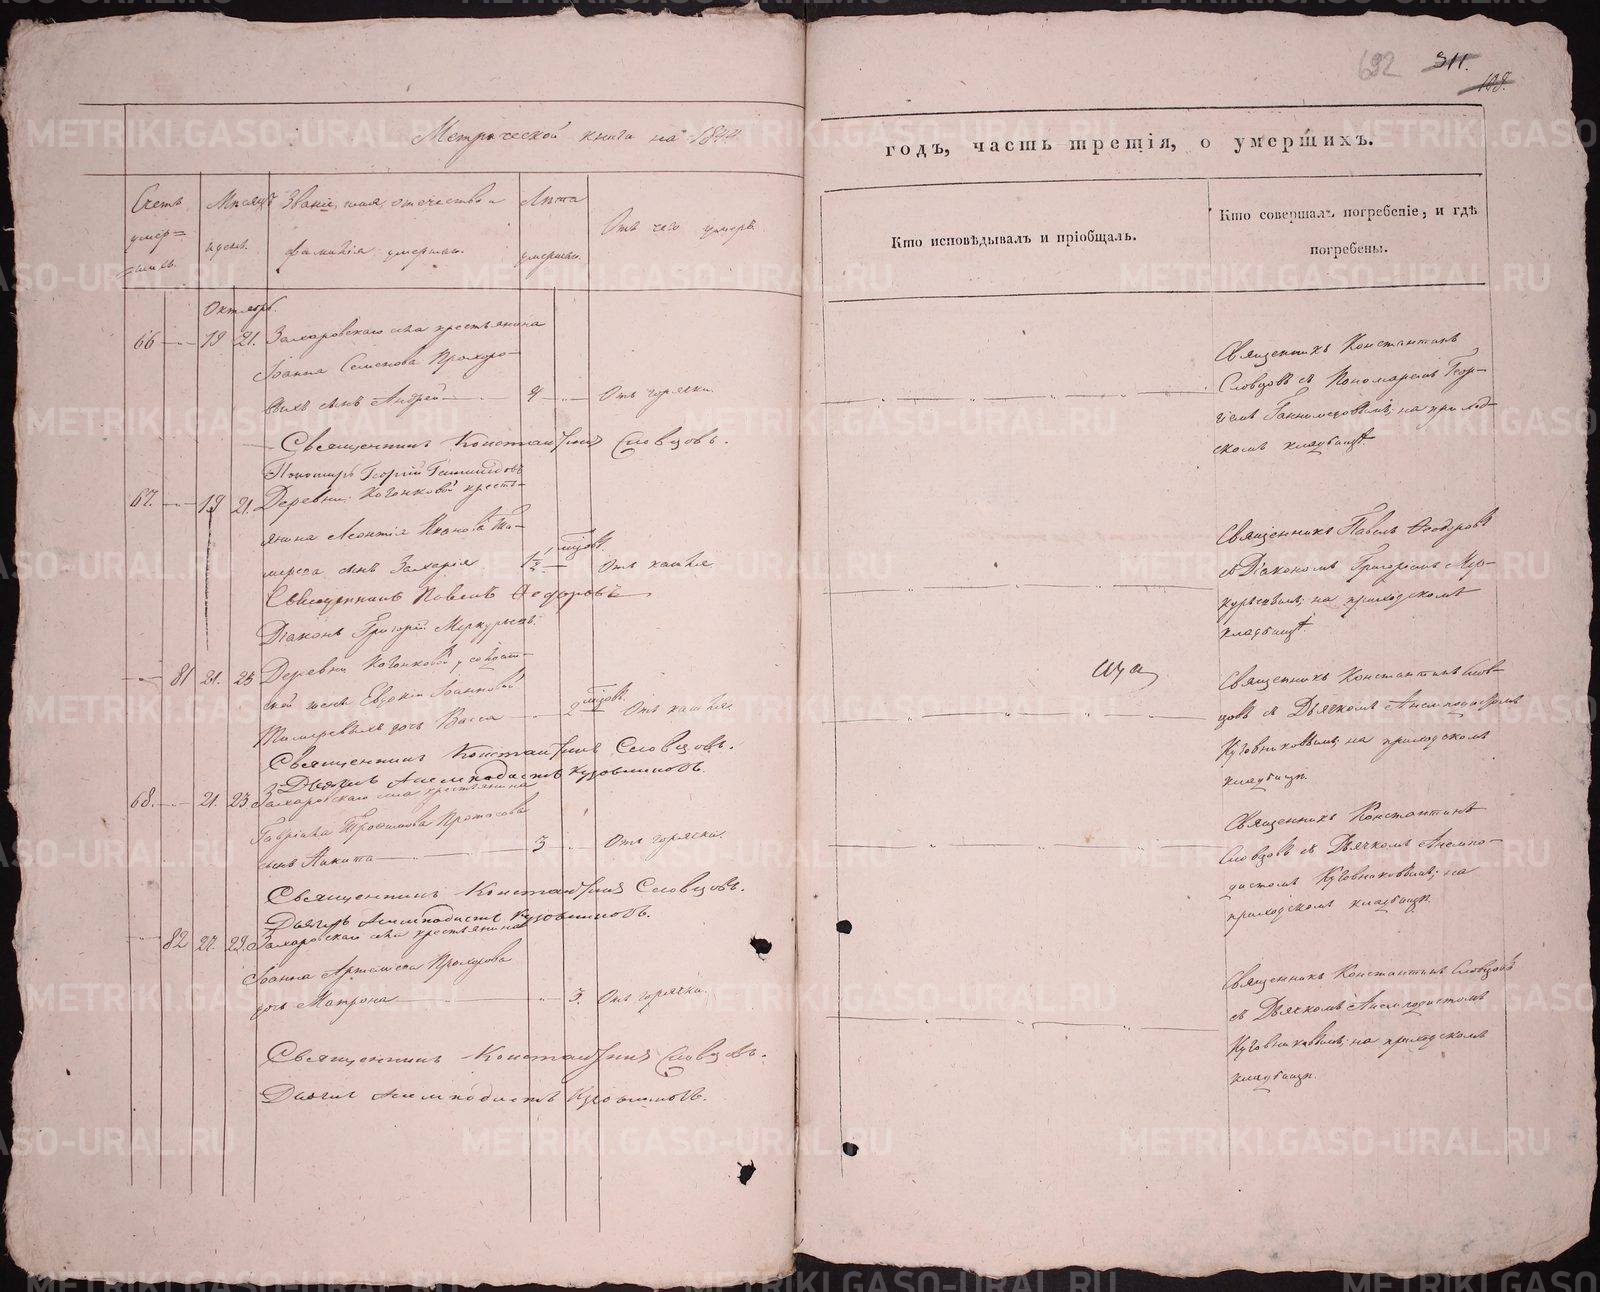 692 311. 108.
Метрической книги на 1844
годъ, часть третія, о умершихъ.
Счетъ умер=шихъ.
Мѣсяцъ и день.
Званіе, имя, отечество и фамилія умершихъ.
Лѣта умершихъ.
Отъ чего умеръ.
Кто исповѣдывалъ и пріобщалъ.
Кто совершалъ погребеніе, и гдѣ
погребены.
Октябрь.
66 19 21. Захаровскаго села крестьянина
Іоанна Семенова Прохоро-
выхъ сынъ Андрей 4 Отъ горячки.
Священникъ Константинъ
Словцовъ съ Пономаремъ Геор-
гіемъ на приход-
скомъ кладбищѣ
Священникъ Константинъ Словцовъ.
Пономарь Георгій
67. 19 21. Деревни крестья-
янина Леонтія Иванова
сынъ Захарія 1½ мѣсяцовъ Отъ кашля
Священникъ Павелъ Ѳеодоровъ
съ Діакономъ Григоріемъ Мер-
курьевымъ; на приходскомъ
кладбищѣ
Священникъ Павелъ Ѳеодоровъ
Діаконъ Григорій Меркурьевъ.
81 21. 23 Деревни солдат-
ской жены Евдокіи Іоанновой
дочь Васса 2 мѣсяцовъ. Отъ кашля.
Священникъ Константинъ Слов-
цовъ съ Дьячкомъ Анемподистомъ
Кузовниковымъ; на приходскомъ
кладбищѣ.
Священникъ Константинъ Словцовъ.
Дьячекъ Анемподистъ Кузовниковъ.
68. 21. 23 Захаровскаго села крестьянина
Гавріила Трофимова Протасова
сынъ Никита 3 Отъ горячки.
Священникъ Константинъ
Словцовъ съ Дьячкомъ Анемпо-
дистомъ Кузовниковымъ; на
приходскомъ кладбищѣ.
Священникъ Константинъ Словцовъ.
Дьячекъ Анемподистъ Кузовниковъ.
82 27. 29. Захаровскаго села крестьянина
Іоанна Артемьева Прохорова
дочь Матрона 3. Отъ горячки.
Священникъ Константинъ Словцовъ
съ Дьячкомъ Анемподистомъ
Кузовниковымъ; на приходскомъ
кладбищѣ.
Священникъ Константинъ Словцовъ.
Дьячекъ Анемподистъ Кузовниковъ.
METRIKI.GASO-URAL.RU